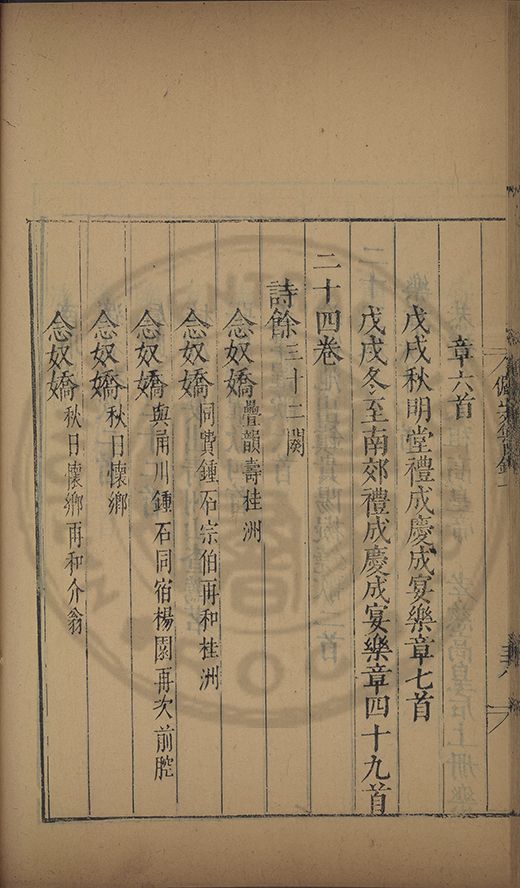 章六首
戊戌秋明堂禮成慶成宴樂章七首
戊戌冬至南郊禮成慶成宴樂章四十九首
二十四卷
詩餘三十二闋
念奴嬌疊韻壽桂洲
念奴嬌同費鍾石宗伯再和桂洲
念奴嬌與甬川鍾石同宿楊園再次前腔
念奴嬌秋日懷鄉
念奴嬌秋日懷鄉再和介翁